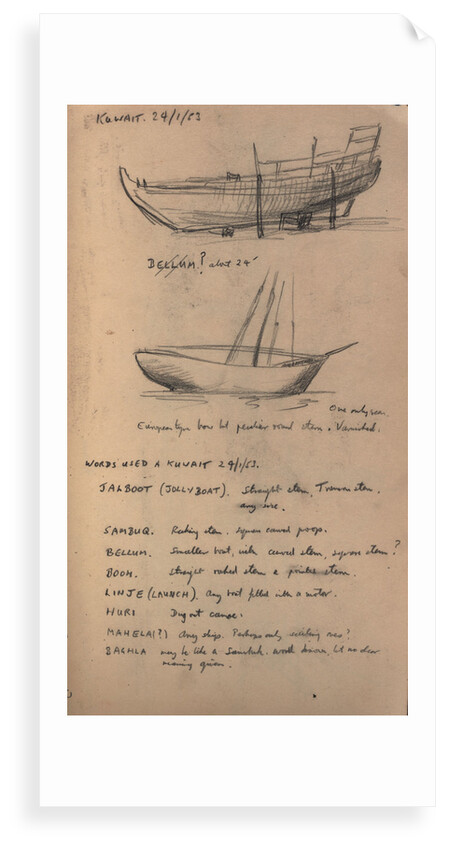 KUWAIT. 24/1/53
BELLUM? about 24'
One only seen.
European type bow but peculiar round stern. Varnished.
WORDS USED A KUWAIT 24/1/53.
JALBOOT (JOLLYBOAT). Straight stem, Transom stern.
any size.
SAMBUQ. Raking stem. square carved poops.
BELLUM. Smaller boat, with curved stem, square stern?
BOOM. Straight raked stem & pointed stern.
LINJE (LAUNCH). Any boat fitted with a motor.
HURI Dug out canoe.
MAHELA(?) Any ships. Perhaps only ones?
BAGHLA may be like a Sambuk. worth known, but no clear
meaning given.